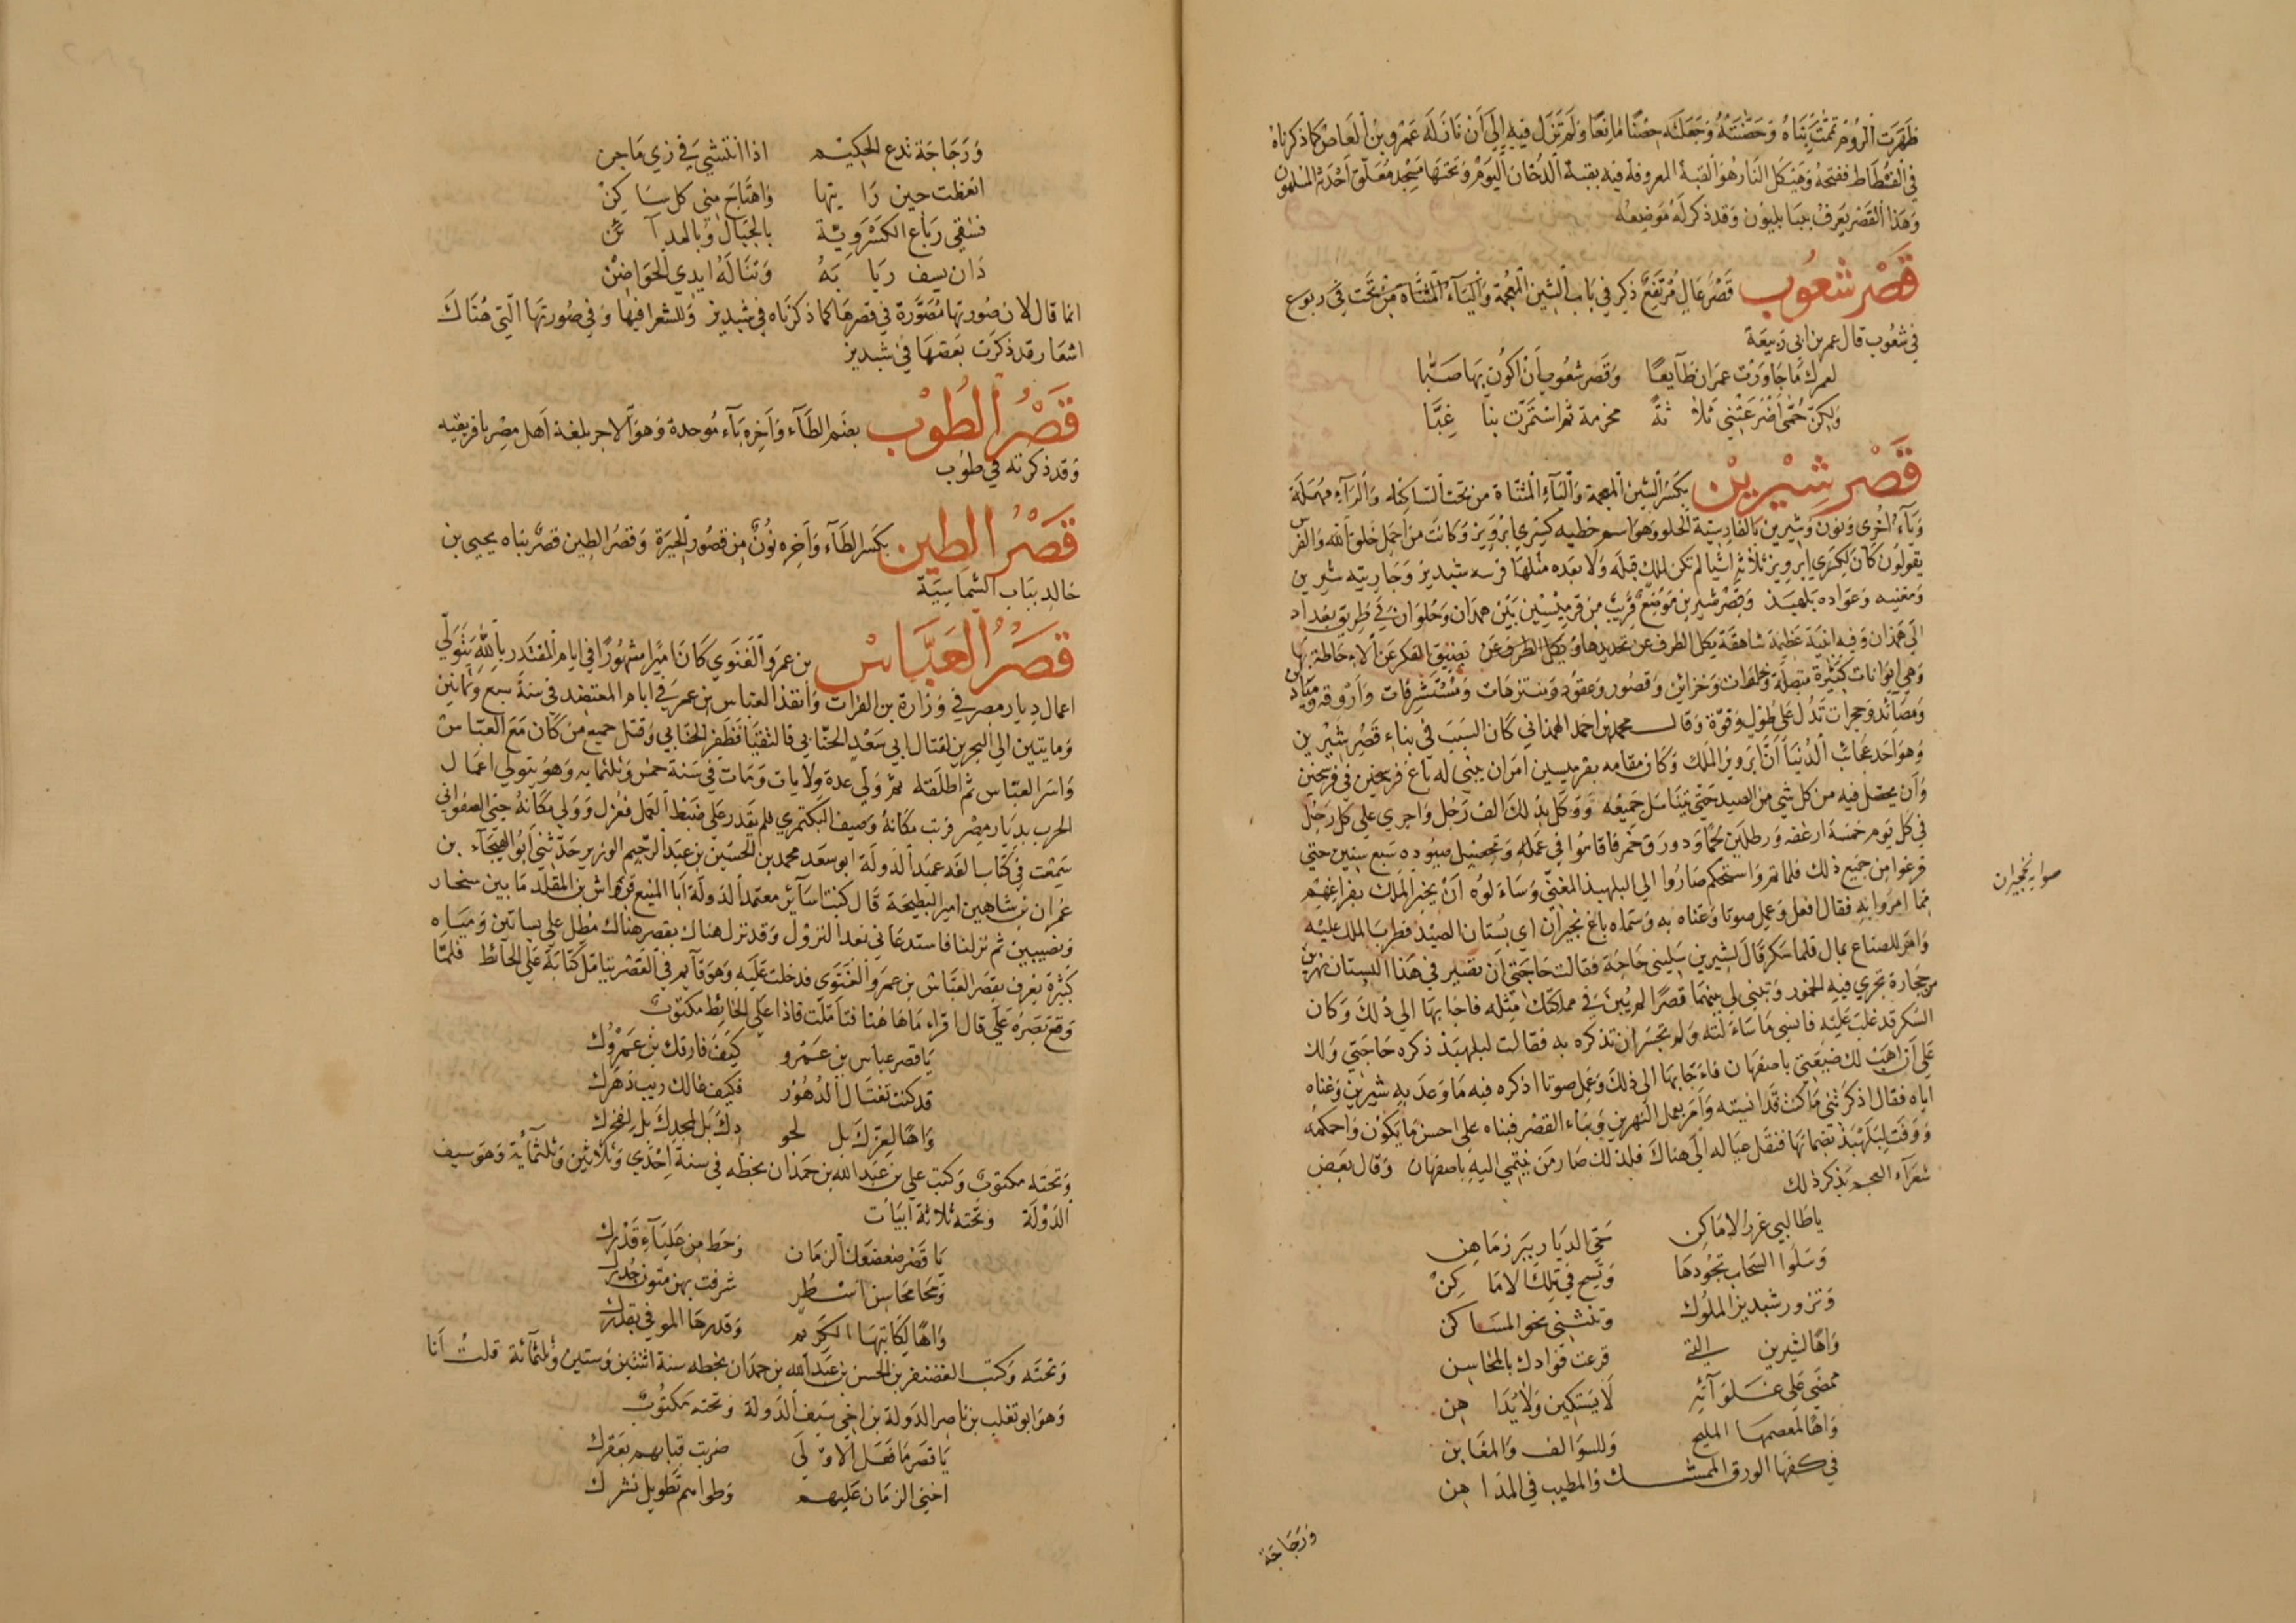 ظهرت الروم تممت بناه وحصنته وجعلته حصنا مانعا ولم تزل فيه الي ان نازله عمرو بن العاص كما ذكرناه
في الفسطاط ففتحه وهيكل النار هو القبة المعروفة فيه بقبة الدخان اليوم وتحتها مسجد معلق احدثه المسلمون
وهذا القصر يعرف ببابليون وقد ذكر له موضعه
قصر شعوب قصر عال مرتفع ذكر في باب الشين المعجمة والياء المثناة من تحت في ربوع
في شعوب قال عمر بن ابي ربيعة
لعمرك ما جاورت غمران طائعا وقصر شعوب أن اكون بها صبا
ولكن حمى اضرعتني ثلاثة مخرمة ثم استمرت بنا غبا
قصر شيرين بكسر الشين المعجمة والياء المثناة من تحت الساكنه والراء مهملة
وياء اخري ونون وشيرين بالفارسية الحلو وهو اسم حظيه كسري ابرويز وكانت من اجمل خلق الله والفرس
يقولون كان لكسري ابرويز ثلاثة اشيا لم تكن لملك قبله ولا بعده مثلها فرسه شبديز وجاريته شيرين
ومغنيه وعواده بلهبذ وقصر شيرين موضع قريب من قرميسين بين همدان وحلوان في طريق بغداد
الي همذان وفيه ابنية عظيمة شاهقة يكل الطرف عن تحديدها ويكل الطرف عن تضييق الفكر عن الاحاطة بها
وهي ايوانات كثيرة متصلة وخلوات وخزائن وقصور وعقود ومتنزهات ومستشرفات واروقه وميادين
ومصائد وحجرات تدل على طول وقوة وقال محمد بن احمد الهمذاني كان السبب في بناء قصر شيرين
وهو احد عجائب الدنيا ان ابرويز الملك وكان مقامه بقرميسين امر ان يبني له باغ فرسخين في فرسخين
وان يحصل فيه من كل شي من الصيد حتى يتناسل جميعه ووكل بذلك الف رجل واجري علي كل رجل
في كل يوم خمسة ارغفه ورطلين لحما ودورق خمر فاقاموا في عمله وتحصيل صيوده سبع سنين حتي
فرغوا من جميع ذلك فلما تم واستحكم صاروا الي البلهبذ المغني وساءلوه ان يخبر الملك بفراغهم
مما امروا به فقال افعل وعمل صوتا وغناه به وسماه باغ نخجيران اي بستان الصيد فطرب الملك عليه
وامر للصناع بمال فلما سكر قال لشيرين سليني حاجة فقالت حاجتي ان تصير في هذا البستان نهرين
من حجارة تجري فيه الخمور وتبني لي بينهما قصرا لم يبن في مملكتك مثله فاجابها الي ذلك وكان
السكر قد غلب عليه فانسي ما ساءلته ولم تجسر ان تذكره به فقالت لبلهبذ ذكره حاجتي ولك
علي ان اهب لك ضيعتي باصفهان فاءجابها الي ذلك وعمل صوتا اذكره فيه ما وعد به شيرين وغناه
اياه فقال اذكرتني ما كنت قد انسيته وامر بعمل النهرين وبناء القصر فبناه على احسن ما يكون واحكمه
ووفت لبلهبذ بضمانها فنقل عياله الي هناك فلذلك صار من ينتمي اليه باصفهان وقال بعض
شعراء العجم يذكر ذلك
يا طالبي غرر الاماكن حي الديار ببرزماهن
وسلوا السحاب تجودها وتسح في تلك الاماكن
وتزور شبديز الملوك وتنثني نحو المساكن
واها لشيرين التي قرعت فوادك بالمحاسن
تمضي علي غلوائه لا يستكين ولا يداهن
واها لمعصمها المليح وللسوالف والمغابن
في كفها الورق الممسك والمطيب في المداهن
وزجاجة
صوابه نخجيران
وزجاجة تدع الحكيم اذا انتشي في زي ماجن
انعظت حين رايتها واهتاج مني كل ساكن
فسقي رباع الكسروية بالجبال وبالمدائن
دان يسف ربابه وتناله ايدي الحواضن
انما قال لان صورتها مصورة في قصرها كما ذكرناه في شبديز وللشعرا فيها وفي صورتها التي هناك
اشعار قد ذكرت بعضها في شبديز
قصر الطوب بضم الطاء واخره باء موحدة وهو الاجر بلغة اهل مصر بافريقيه
وقد ذكرته في طوب
قصر الطين بكسر الطاء واخره نون من قصور الحيرة وقصر الطين قصر بناه يحيى بن
خالد بباب الشماسية
قصر العباس بن عمرو الغنوي كان اميرا مشهورا في ايام المقتدر بالله يتولي
اعمال ديار مصر في وزارة بن الفرات وانفذ العباس بن عمر في ايام المعتضد في سنة سبع وثمانين
ومايتين الي البحرين لقتال ابي سعد الجنابي فالتقيا فظفر الجنابي وقتل جميع من كان مع العباس
واسر العباس ثم اطلقه ثم ولي عدة ولايات ومات في سنة خمس وثلثمايه وهو يتولي اعمال
الحرب بديار مصر فرتب مكانه وصيف البكتمري فلم يقدر علي ضبط العمل فعزل وولي مكانه جني الصفواني
سمعت في كتاب الفه عميد الدولة ابو سعد محمد بن الحسين بن عبد الرحيم الوزير حدثني ابو الهيجاء بن
عمران بن شاهين امير البطيحة قال كنت اسائر معتمد الدولة ابا المنيع قرواش بن المقلد ما بين سنجار
ونصيبين ثم نزلنا فاستدعاني بعد النزول وقد نزل هناك بقصر هناك مطل على بساتين ومياه
كثيرة يعرف بقصر العباس بن عمرو الغنوي فدخلت عليه وهو قائم في القصر يتامل كتابة علي الحائط فلما
وقع بصره علي قال اقراء ما هاهنا فتاملت فاذا علي الحائط مكتوب
يا قصر عباس بن عمرو كيف فارقك بن عمروك
قد كنت تغتال الدهور فكيف غالك ريب دهرك
واها لعزك بل لجودك بل لمجدك بل لفخرك
وتحته مكتوب وكتب علي بن عبد الله بن حمدان بخطه في سنة احدي وثلاثين وثلثمائة وهو سيف
الدولة وتحته ثلاثة ابيات
يا قصر ضعضعك الزمان وحط من علياء قدرك
ومحا محاسن اسطر شرفت بهن متون جدرك
واها لكاتبها الكريم وقدرها الموفي بقدرك
وتحته وكتب الغضنفر بن الحسن بن عبد الله بن حمدان بخطه سنة اثنتين وستين وثلثمائة قلت انا
وهو ابو تغلب بن ناصر الدولة بن اخي سيف الدولة وتحته مكتوب
يا قصر ما فعل الاولي ضربت قبابهم بعقرك
اخني الزمان عليهم وطواهم تطويل نشرك